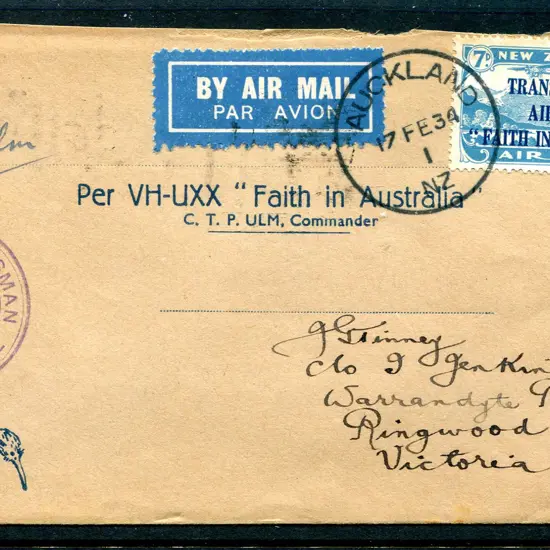 BY AIR MAIL
PAR AVION
AUCKLAND
17 FE 34
1
NZ
7D NEW Z
TRANS
AIR
"FAITH IN
AIR
lm
Per VH-UXX "Faith in Australia"
C. T. P. ULM, Commander
SMAN
J G Tinney
c/o J Jenkin
Warrandyte
Ringwood
Victoria